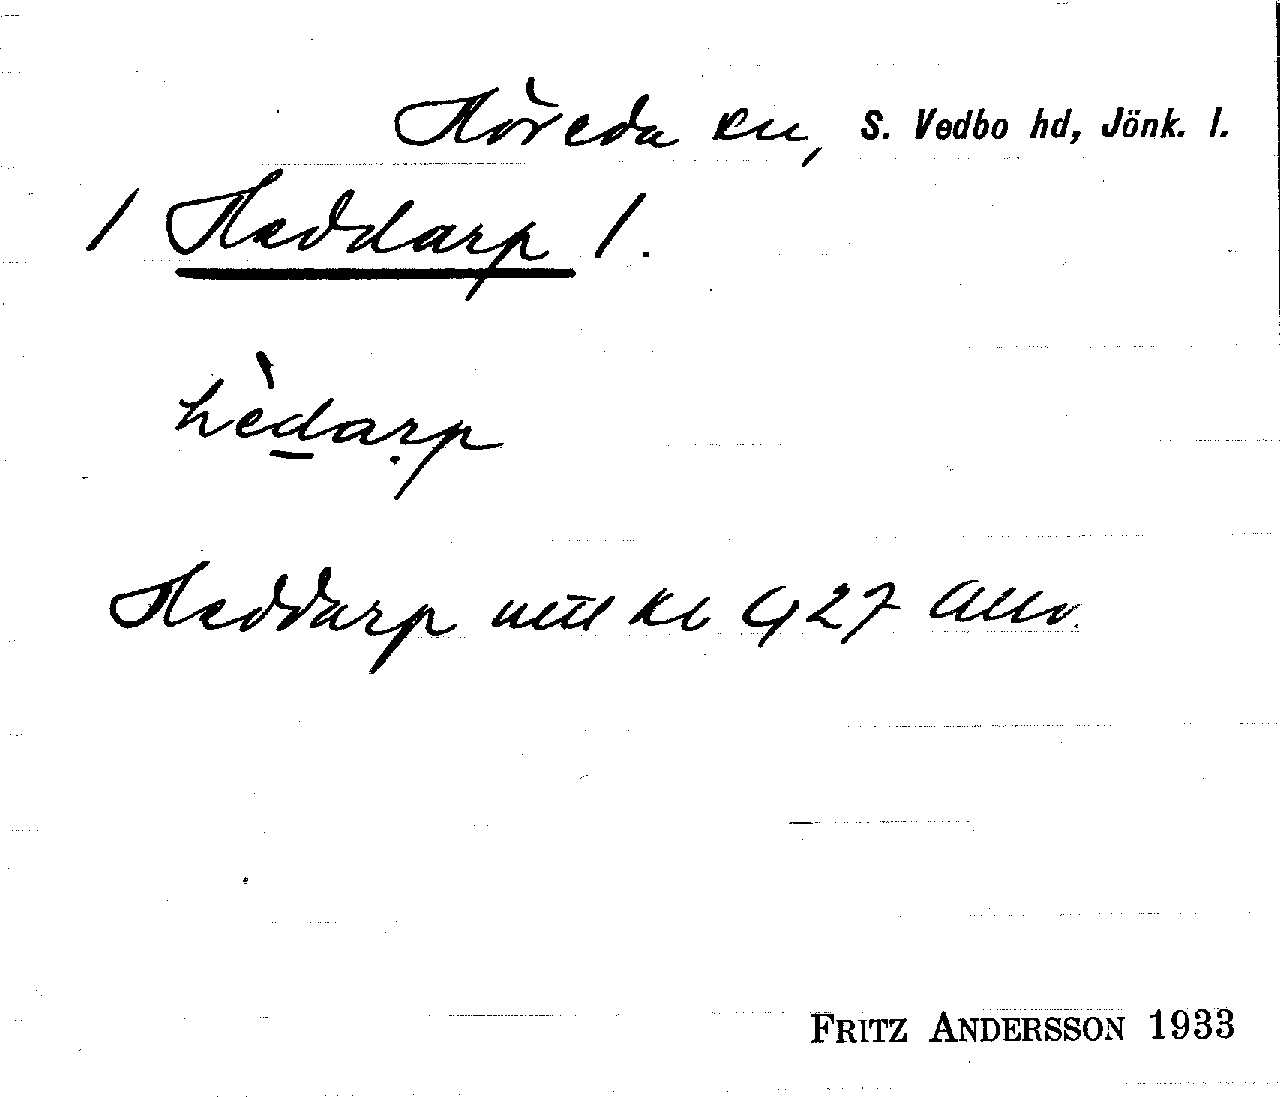 Höreda sn, S. Vedbo hd, Jönk. l.
/ Haddarp /.
hèdarp
Haddarp
FRITZ ANDERSSON 1933